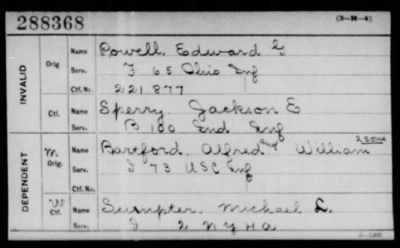 288368 (3-H-4)
INVALID
Orig Name Powell, Edward G
Serv. F 65 Ohio Inf
Ctf. No. 221877
Ctf. Name Sperry Jackson E
Serv. B 100 Ind Inf
DEPENDENT
M. Orig. Name Bartford, Alfred William
Serv. I 73 USC Inf
Ctf. No.
W Ctf. Name Sumpter, Michael L.
Serv. 2 NYHA